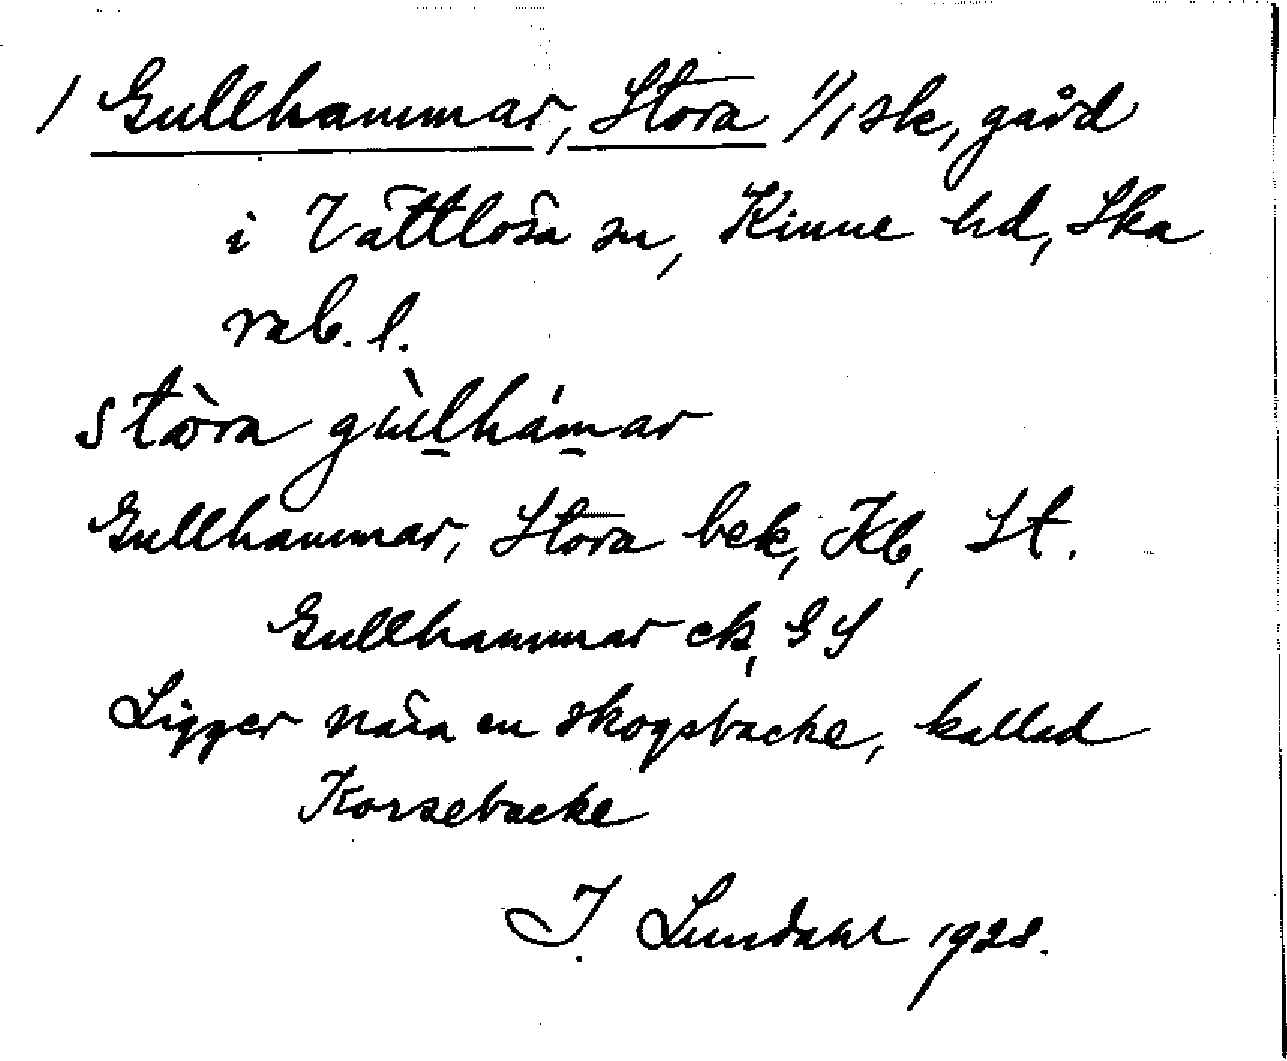 1 Gullhammar, Stora 1/1 sk, gård
i Vättlösa sn, Kinne hd, Ska
rab. l.
stòra gùlhámar
Gullhammar, Stora bek, Kb, St.
Gullhammar ek, GS
Ligger nära en skogsbacke, kallad
Korsebacke
I. Lundahl 1928.